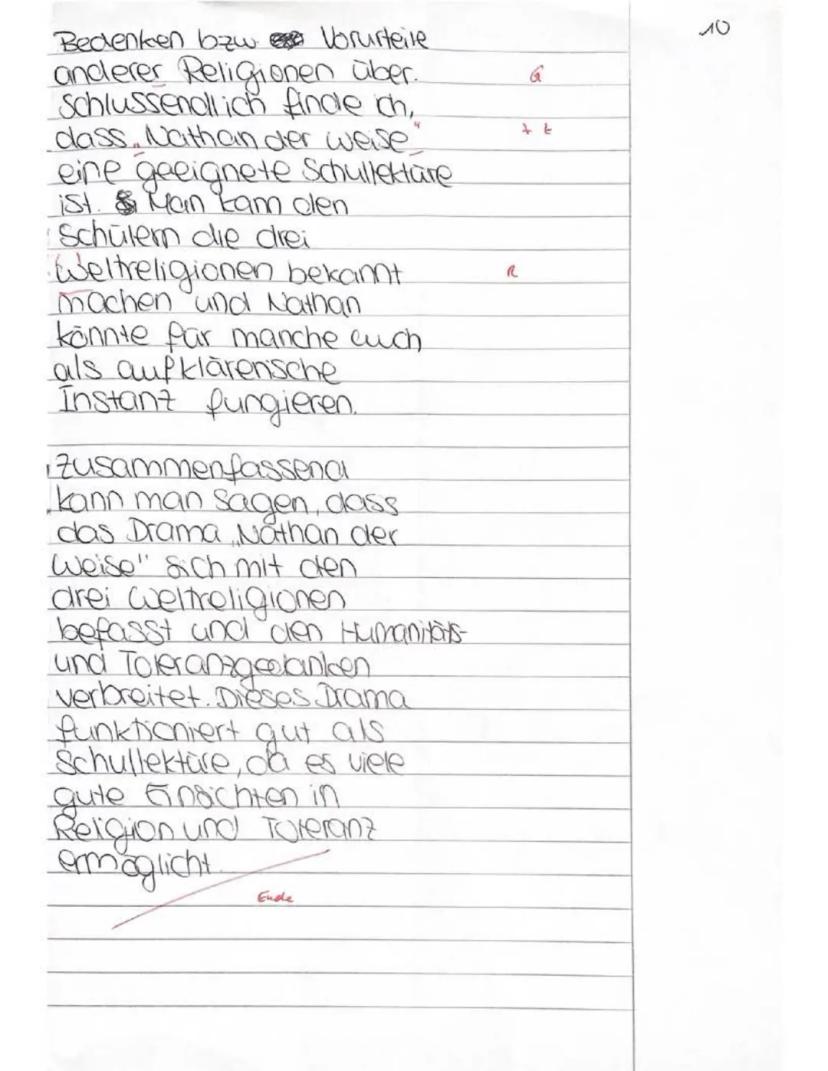 10
Bedenken bzw. Vorurteile
anderer Religionen über.
G
Schlussendlich finde ich,
dass „Nathan der weise"
eine geeignete Schullektüre
ist. Man kann den
Schülern die drei
Weltreligionen bekannt
R
machen und Nathan
könnte für manche auch
als aufklärerische
Instanz fungieren.
Zusammenfassend
kann man sagen, dass
das Drama „Nathan der
Weise" sich mit den
drei Weltreligionen
befasst und den Humanitäts-
und Toleranzgedanken
verbreitet. Dieses Drama
funktioniert gut als
Schullektüre, da es viele
gute Einsichten in
Religion und Toleranz
ermöglicht.
Ende